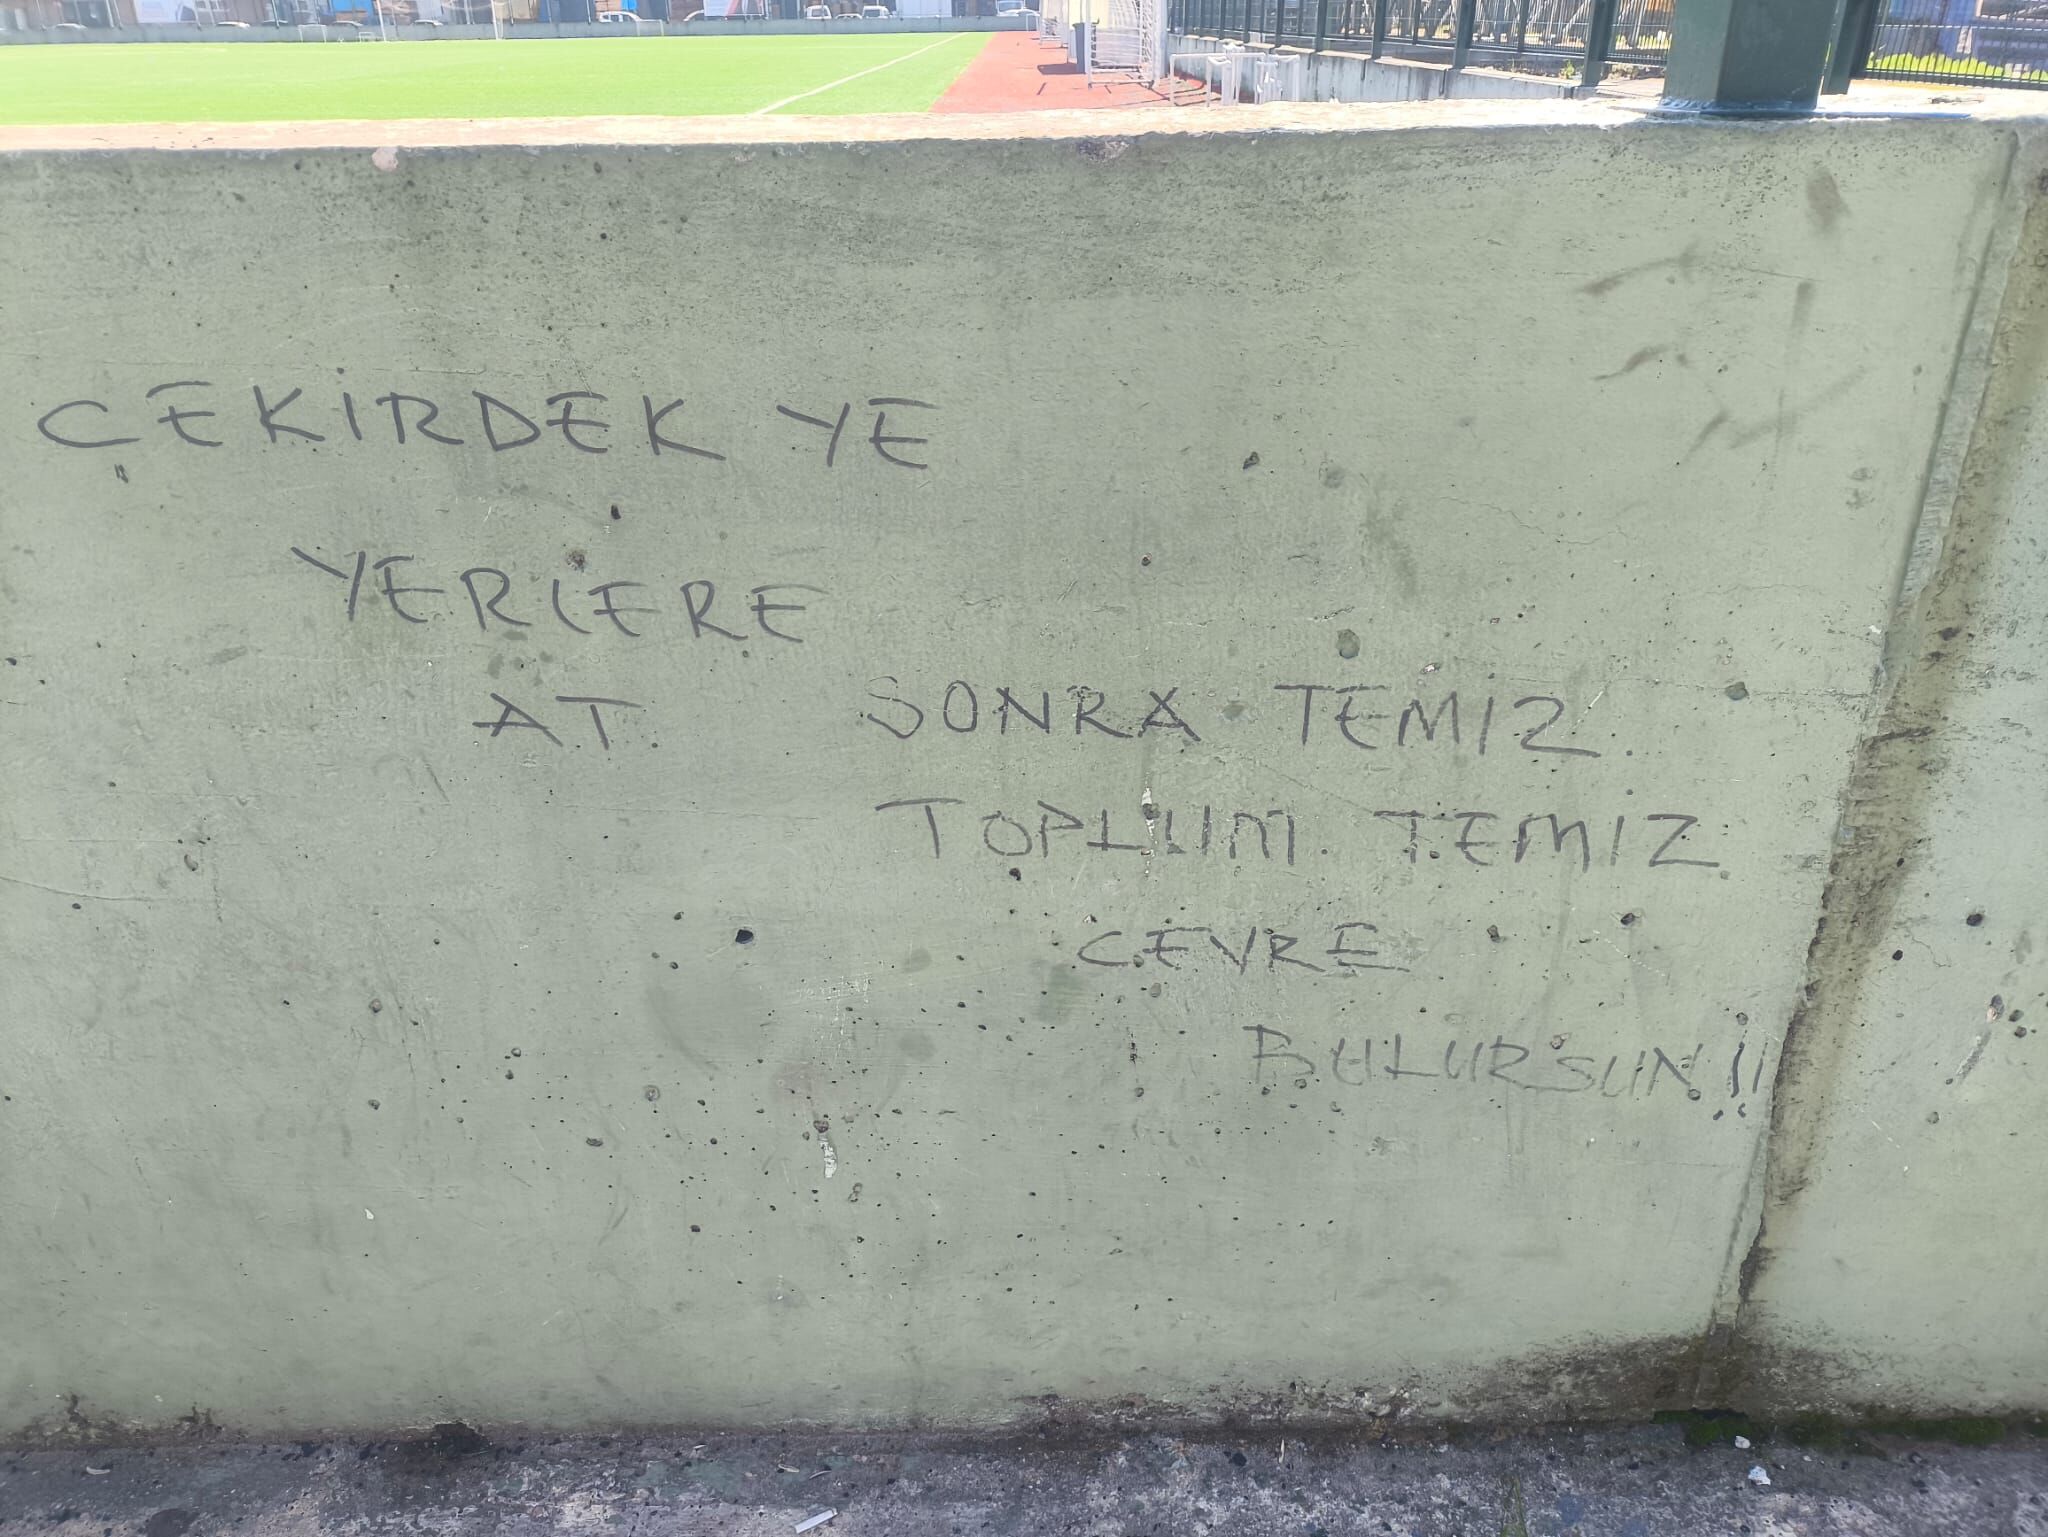 ÇEKİRDEK YE
YERLERE
AT. SONRA TEMİZ.
TOPLUM. TEMIZ
CEVRE
BULURSUN!!